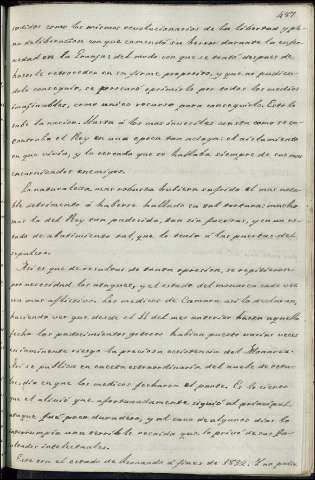 457.
nocidos como los mismos revolucionarios de la libertad y ple-
na deliberacion con que cometió su horror durante la enfer-
medad en la Granja: del modo con que se trató despues de
hacerle retroceder en su firme proposito, y que no pudien-
dolo conseguir, se procuró oprimirlo por todos los medios
imaginables, como unico recurso para conseguirlo. Esto lo
sabe la nacion. Hasta á los mas imbeciles consta como se en-
contraba el Rey en una epoca tan aciaga: el aislamiento
en que vivia, y lo cercado que se hallaba siempre de sus mas
encarnizados enemigos.
La naturaleza mas robusta hubiera sufrido el mas nota-
ble abatimiento á haberse hallado en tal tortura: mucho
mas la del Rey tan padecida, tan sin fuerzas, y en un es-
tado de abatimiento tal, que lo tenia á las puertas del
sepulcro.
Asi es que de resultas de tanta opresion, se repitieron
por necesidad los ataques, y el estado del monarca cada vez
era mas aflictivo: los medicos de Camara asi lo declaran,
haciendo ver que desde el 11 del mes anterior hasta aquella
fecha los padecimientos gotosos habian puesto varias veces
en inminente riesgo la preciosa existencia del Monarca.
Asi se publica en gaceta extraordinaria del nueve de octu-
bre, dia en que los medicos fecharon el parte. Es lo cierto
que el alivio que afortunadamente siguió al principal
ataque fué poco duradero, y al cabo de algunos dias lo
interrumpia una terrible recaida que lo privó de sus fa-
cultades intelectuales.
Este era el estado de Fernando á fines de 1832. Y no podia